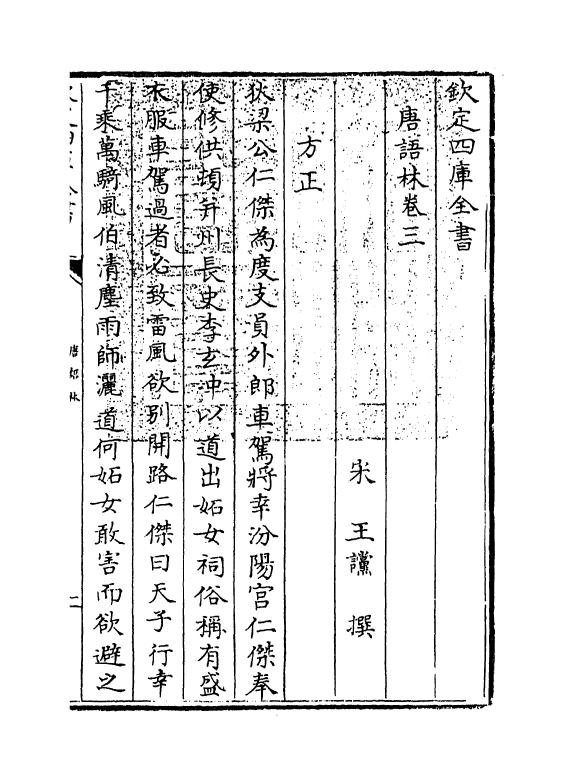 欽定四庫全書
唐語林卷三
宋 王讜 撰
方正
狄梁公仁傑為度支員外郎車駕將幸汾陽宫仁傑奉
使修供頓并州長史李玄沖以道出妬女祠俗稱有盛
衣服車駕過者必致雷風欲别開路仁傑曰天子行幸
千乘萬騎風伯清塵雨師灑道何妬女敢害而欲避之
唐語林